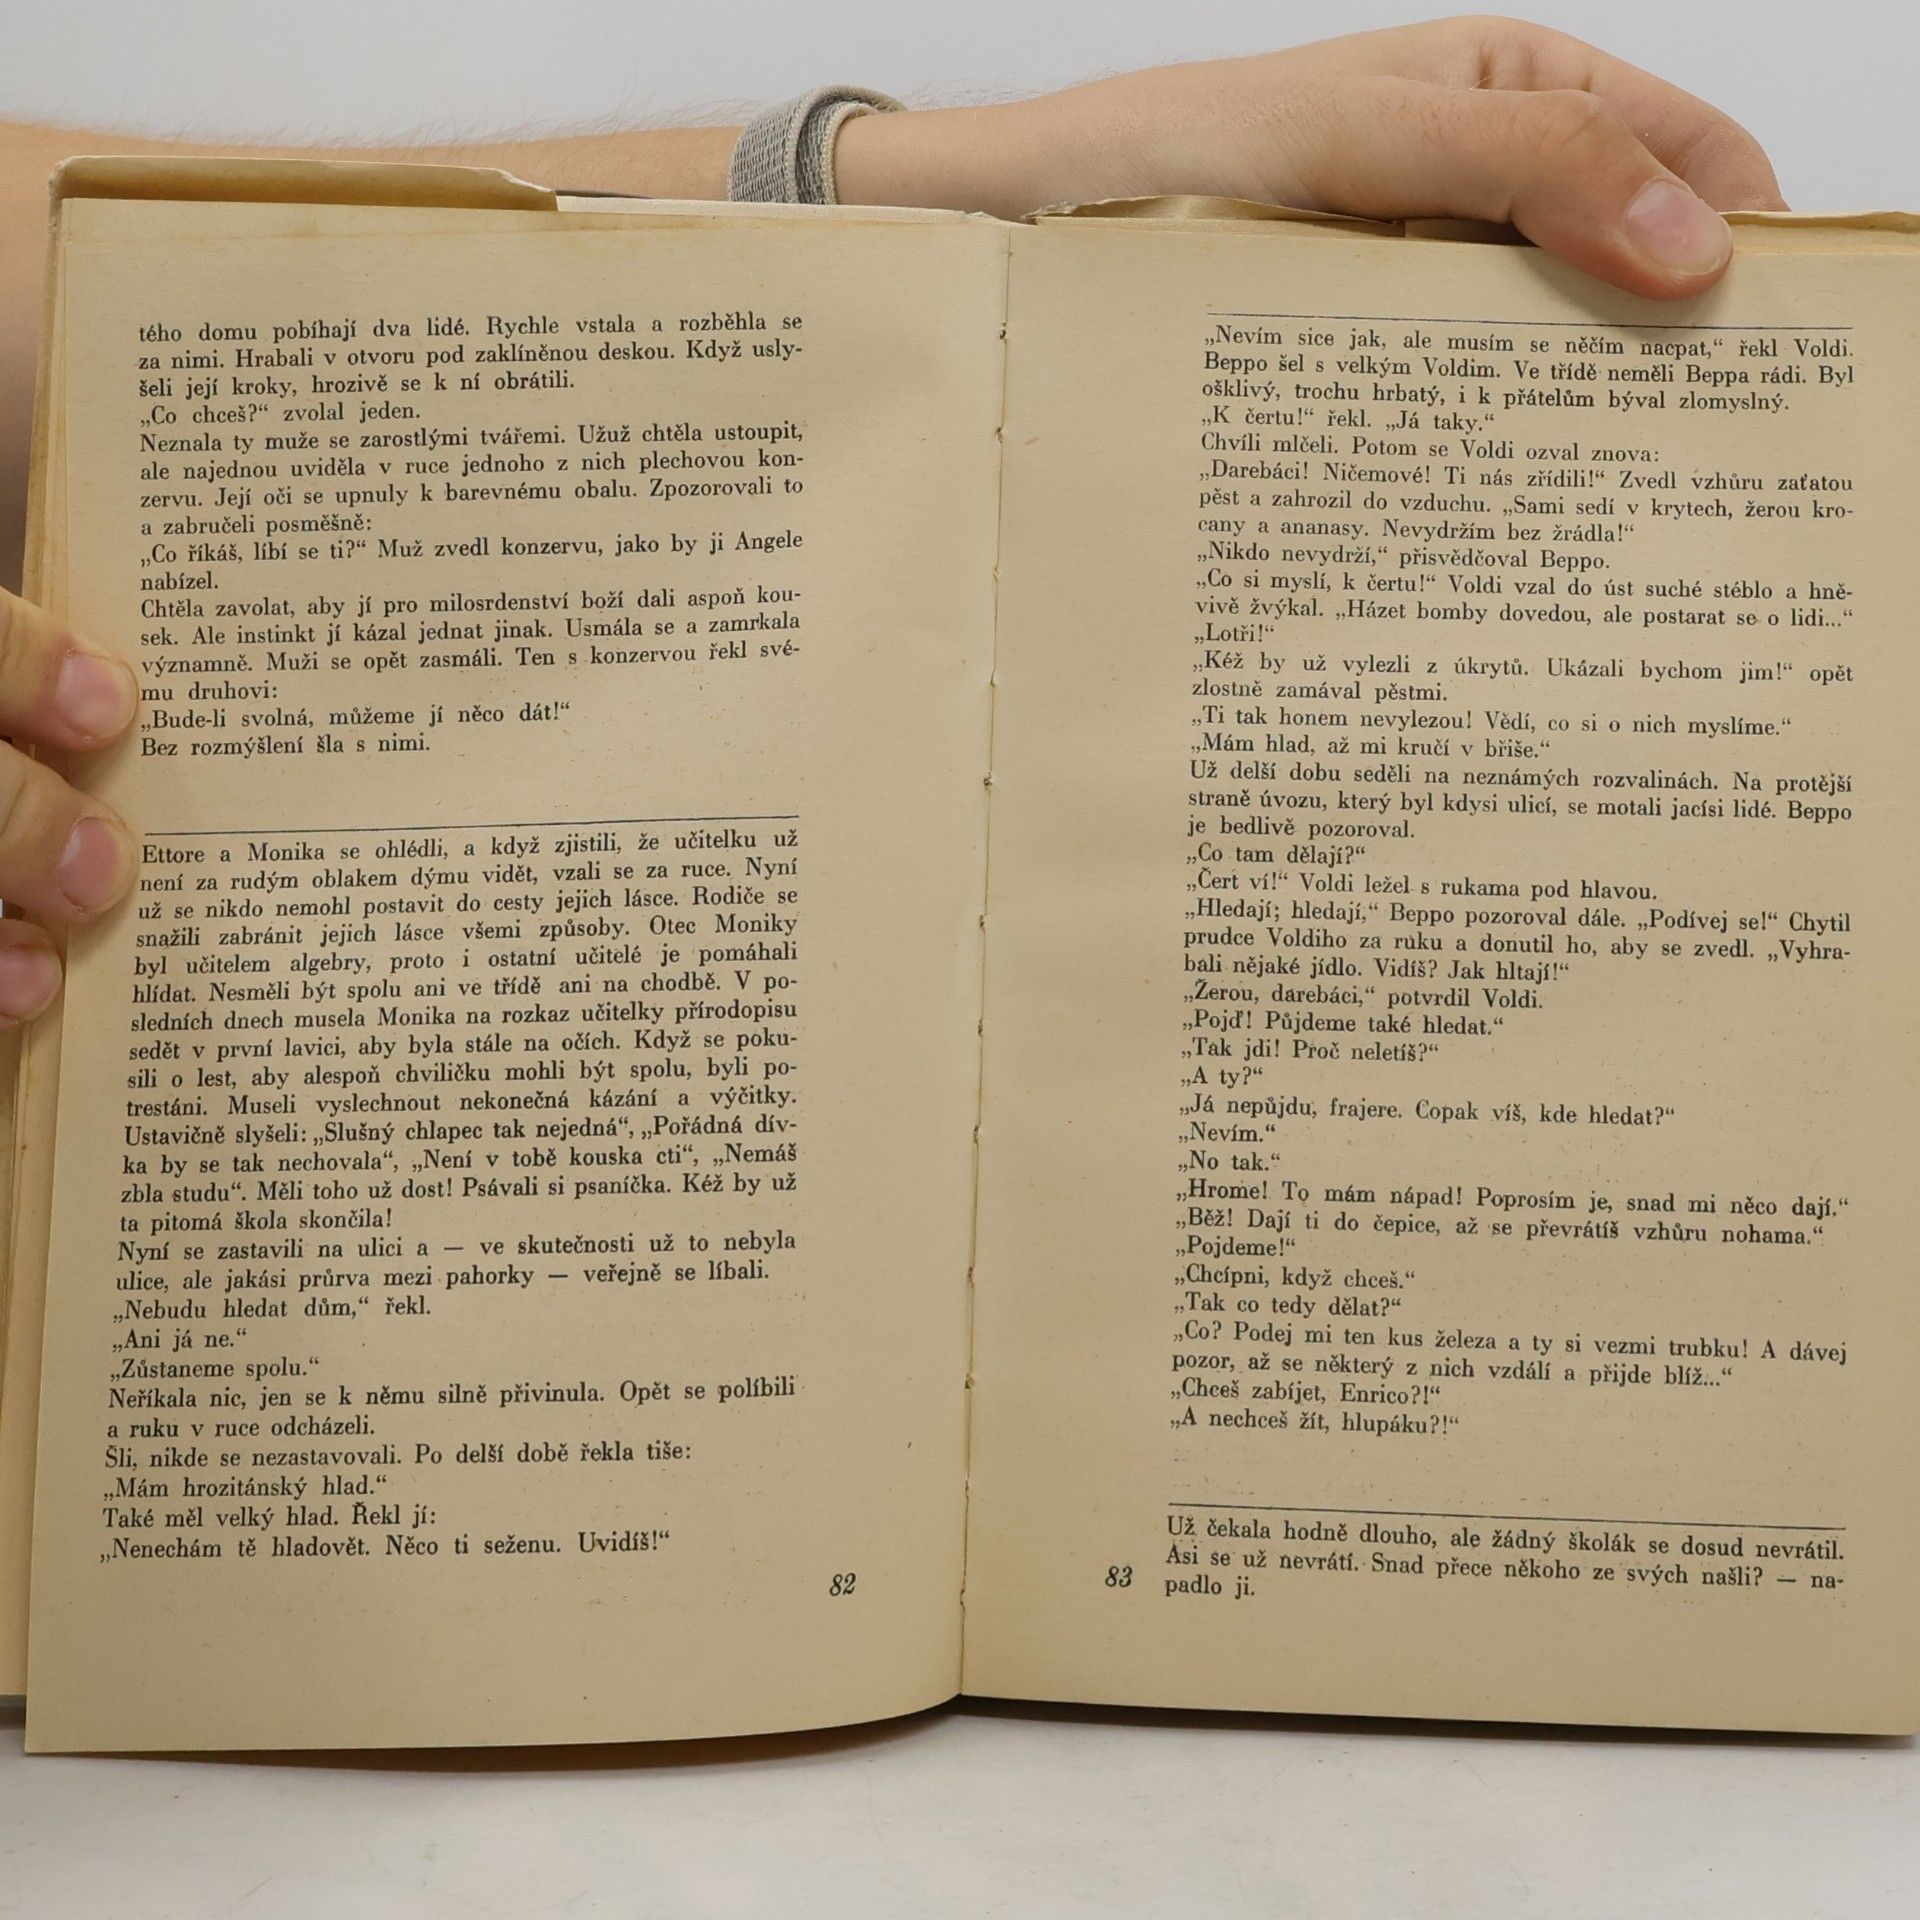 tého domu pobíhají dva lidé. Rychle vstala a rozběhla se
za nimi. Hrabali v otvoru pod zaklíněnou deskou. Když usly-
šeli její kroky, hrozivě se k ní obrátili.
„Co chceš?“ zvolal jeden.
Neznala ty muže se zarostlými tvářemi. Užuž chtěla ustoupit,
ale najednou uviděla v ruce jednoho z nich plechovou kon-
zervu. Její oči se upnuly k barevnému obalu. Zpozorovali to
a zabručeli posměšně:
„Co říkáš, líbí se ti?“ Muž zvedl konzervu, jako by ji Angele
nabízel.
Chtěla zavolat, aby jí pro milosrdenství boží dali aspoň kou-
sek. Ale instinkt jí kázal jednat jinak. Usmála se a zamrkala
významně. Muži se opět zasmáli. Ten s konzervou řekl své-
mu druhovi:
„Bude-li svolná, můžeme jí něco dát!“
Bez rozmýšlení šla s nimi.
Ettore a Monika se ohlédli, a když zjistili, že učitelku už
není za rudým oblakem dýmu vidět, vzali se za ruce. Nyní
už se nikdo nemohl postavit do cesty jejich lásce. Rodiče se
snažili zabránit jejich lásce všemi způsoby. Otec Moniky
byl učitelem algebry, proto i ostatní učitelé je pomáhali
hlídat. Nesměli být spolu ani ve třídě ani na chodbě. V po-
sledních dnech musela Monika na rozkaz učitelky přírodopisu
sedět v první lavici, aby byla stále na očích. Když se poku-
sili o lest, aby alespoň chviličku mohli být spolu, byli po-
trestáni. Museli vyslechnout nekonečná kázání a výčitky.
Ustavičně slyšeli: „Slušný chlapec tak nejedná“, „Pořádná dív-
ka by se tak nechovala“, „Není v tobě kouska cti“, „Nemáš
zbla studu“. Měli toho už dost! Psávali si psaníčka. Kéž by už
ta pitomá škola skončila!
Nyní se zastavili na ulici a — ve skutečnosti už to nebyla
ulice, ale jakási průrva mezi pahorky — veřejně se líbali.
„Nebudu hledat dům,“ řekl.
„Ani já ne.“
„Zůstaneme spolu.“
Neříkala nic, jen se k němu silně přivinula. Opět se políbili
a ruku v ruce odcházeli.
Šli, nikde se nezastavovali. Po delší době řekla tiše:
„Mám hrozitánský hlad.“
Také měl velký hlad. Řekl jí:
„Nenechám tě hladovět. Něco ti seženu. Uvidíš!“
82
„Nevím sice jak, ale musím se něčím nacpat,“ řekl Voldi.
Beppo šel s velkým Voldim. Ve třídě neměli Beppa rádi. Byl
ošklivý, trochu hrbatý, i k přátelům býval zlomyslný.
„K čertu!“ řekl. „Já taky.“
Chvíli mlčeli. Potom se Voldi ozval znova:
„Darebáci! Ničemové! Ti nás zřídili!“ Zvedl vzhůru zaťatou
pěst a zahrozil do vzduchu. „Sami sedí v krytech, žerou kro-
cany a ananasy. Nevydržím bez žrádla!“
„Nikdo nevydrží,“ přisvědčoval Beppo.
„Co si myslí, k čertu!“ Voldi vzal do úst suché stéblo a hně-
vivě žvýkal. „Házet bomby dovedou, ale postarat se o lidi...“
„Lotři!“
„Kéž by už vylezli z úkrytů. Ukázali bychom jim!“ opět
zlostně zamával pěstmi.
„Ti tak honem nevylezou! Vědí, co si o nich myslíme.“
„Mám hlad, až mi kručí v břiše.“
Už delší dobu seděli na neznámých rozvalinách. Na protější
straně úvozu, který byl kdysi ulicí, se motali jacísi lidé. Beppo
je bedlivě pozoroval.
„Co tam dělají?“
„Čert ví!“ Voldi ležel s rukama pod hlavou.
„Hledají; hledají,“ Beppo pozoroval dále. „Podívej se!“ Chytil
prudce Voldiho za ruku a donutil ho, aby se zvedl. „Vyhra-
bali nějaké jídlo. Vidíš? Jak hltají!“
„Žerou, darebáci,“ potvrdil Voldi.
„Pojď! Půjdeme také hledat.“
„Tak jdi! Proč neletíš?“
„A ty?“
„Já nepůjdu, frajere. Copak víš, kde hledat?“
„Nevím.“
„No tak.“
„Hrome! To mám nápad! Poprosím je, snad mi něco dají.“
„Běž! Dají ti do čepice, až se převrátíš vzhůru nohama.“
„Pojdeme!“
„Chcípni, když chceš.“
„Tak co tedy dělat?“
„Co? Podej mi ten kus železa a ty si vezmi trubku! A dávej
pozor, až se některý z nich vzdálí a přijde blíž...“
„Chceš zabíjet, Enrico?!“
„A nechceš žít, hlupáku?!“
Už čekala hodně dlouho, ale žádný školák se dosud nevrátil.
Asi se už nevrátí. Snad přece někoho ze svých našli? — na-
padlo ji.
83